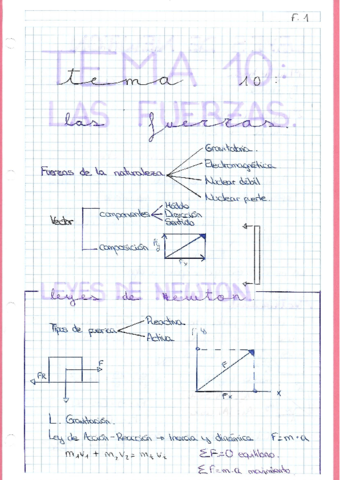 F. 1
TEMA 10:
tema 10:
LAS FUERZAS.
las fuerzas.
Fuerzas de la naturaleza
Gravitatoria.
Electromagnética
Nuclear débil
Nuclear fuerte.
Vector
componentes
Módulo
Dirección
Sentido
composición
LEYES DE NEWTON.
leyes de Newton.
Tipos de fuerza
Reactiva.
Activa.
F
FR
F
x
L. Gravitación.
Ley de Acción-Reacción → Inercia y dinámica F=m·a
ΣF=0 equilibrio.
ΣF=m·a movimiento